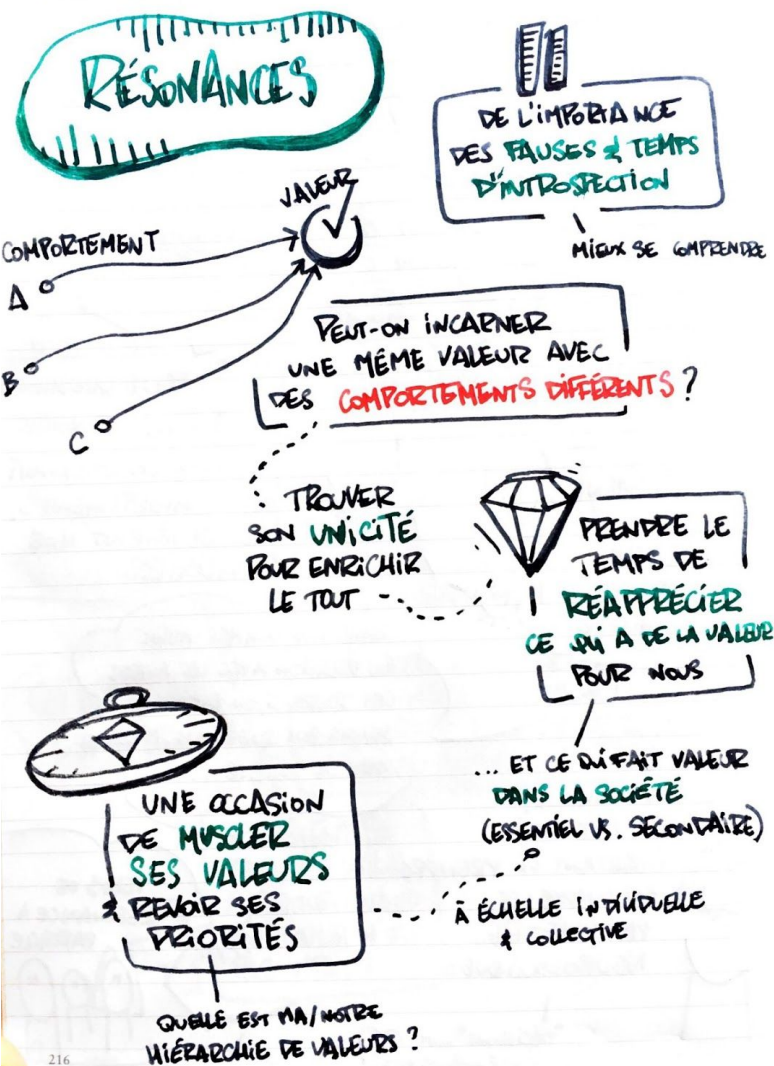 RÉSONANCES
DE L'IMPORTANCE
DES PAUSES & TEMPS
D'INTROSPECTION
MIEUX SE COMPRENDRE
VALEUR
COMPORTEMENT
A
B
C
PEUT-ON INCARNER
UNE MÊME VALEUR AVEC
DES COMPORTEMENTS DIFFÉRENTS ?
TROUVER
SON UNICITÉ
POUR ENRICHIR
LE TOUT
PRENDRE LE
TEMPS DE
RÉAPPRÉCIER
CE QUI A DE LA VALEUR
POUR NOUS
... ET CE QUI FAIT VALEUR
DANS LA SOCIÉTÉ
(ESSENTIEL VS. SECONDAIRE)
À ÉCHELLE INDIVIDUELLE
& COLLECTIVE
UNE OCCASION
DE MUSCLER
SES VALEURS
& REVOIR SES
PRIORITÉS
QUELLE EST MA/NOTRE
HIÉRARCHIE DE VALEURS ?
216